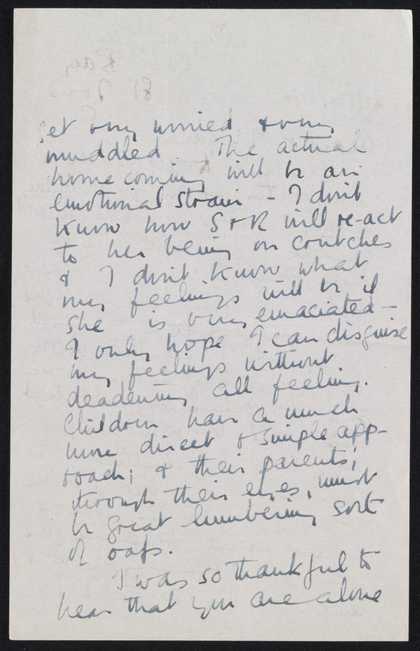 get very worried & very
muddled. The actual
homecoming will be an
emotional strain - I don't
know how S & R will re-act
to her being on crutches
& I don't know what
my feelings will be if
she is very emaciated -
I only hope I can disguise
my feelings without
deadening all feeling.
Children have a much
more direct & simple app-
roach; & their parents,
through their eyes, must
be great lumbering sort
of oafs.
I was so thankful to
hear that you are alone